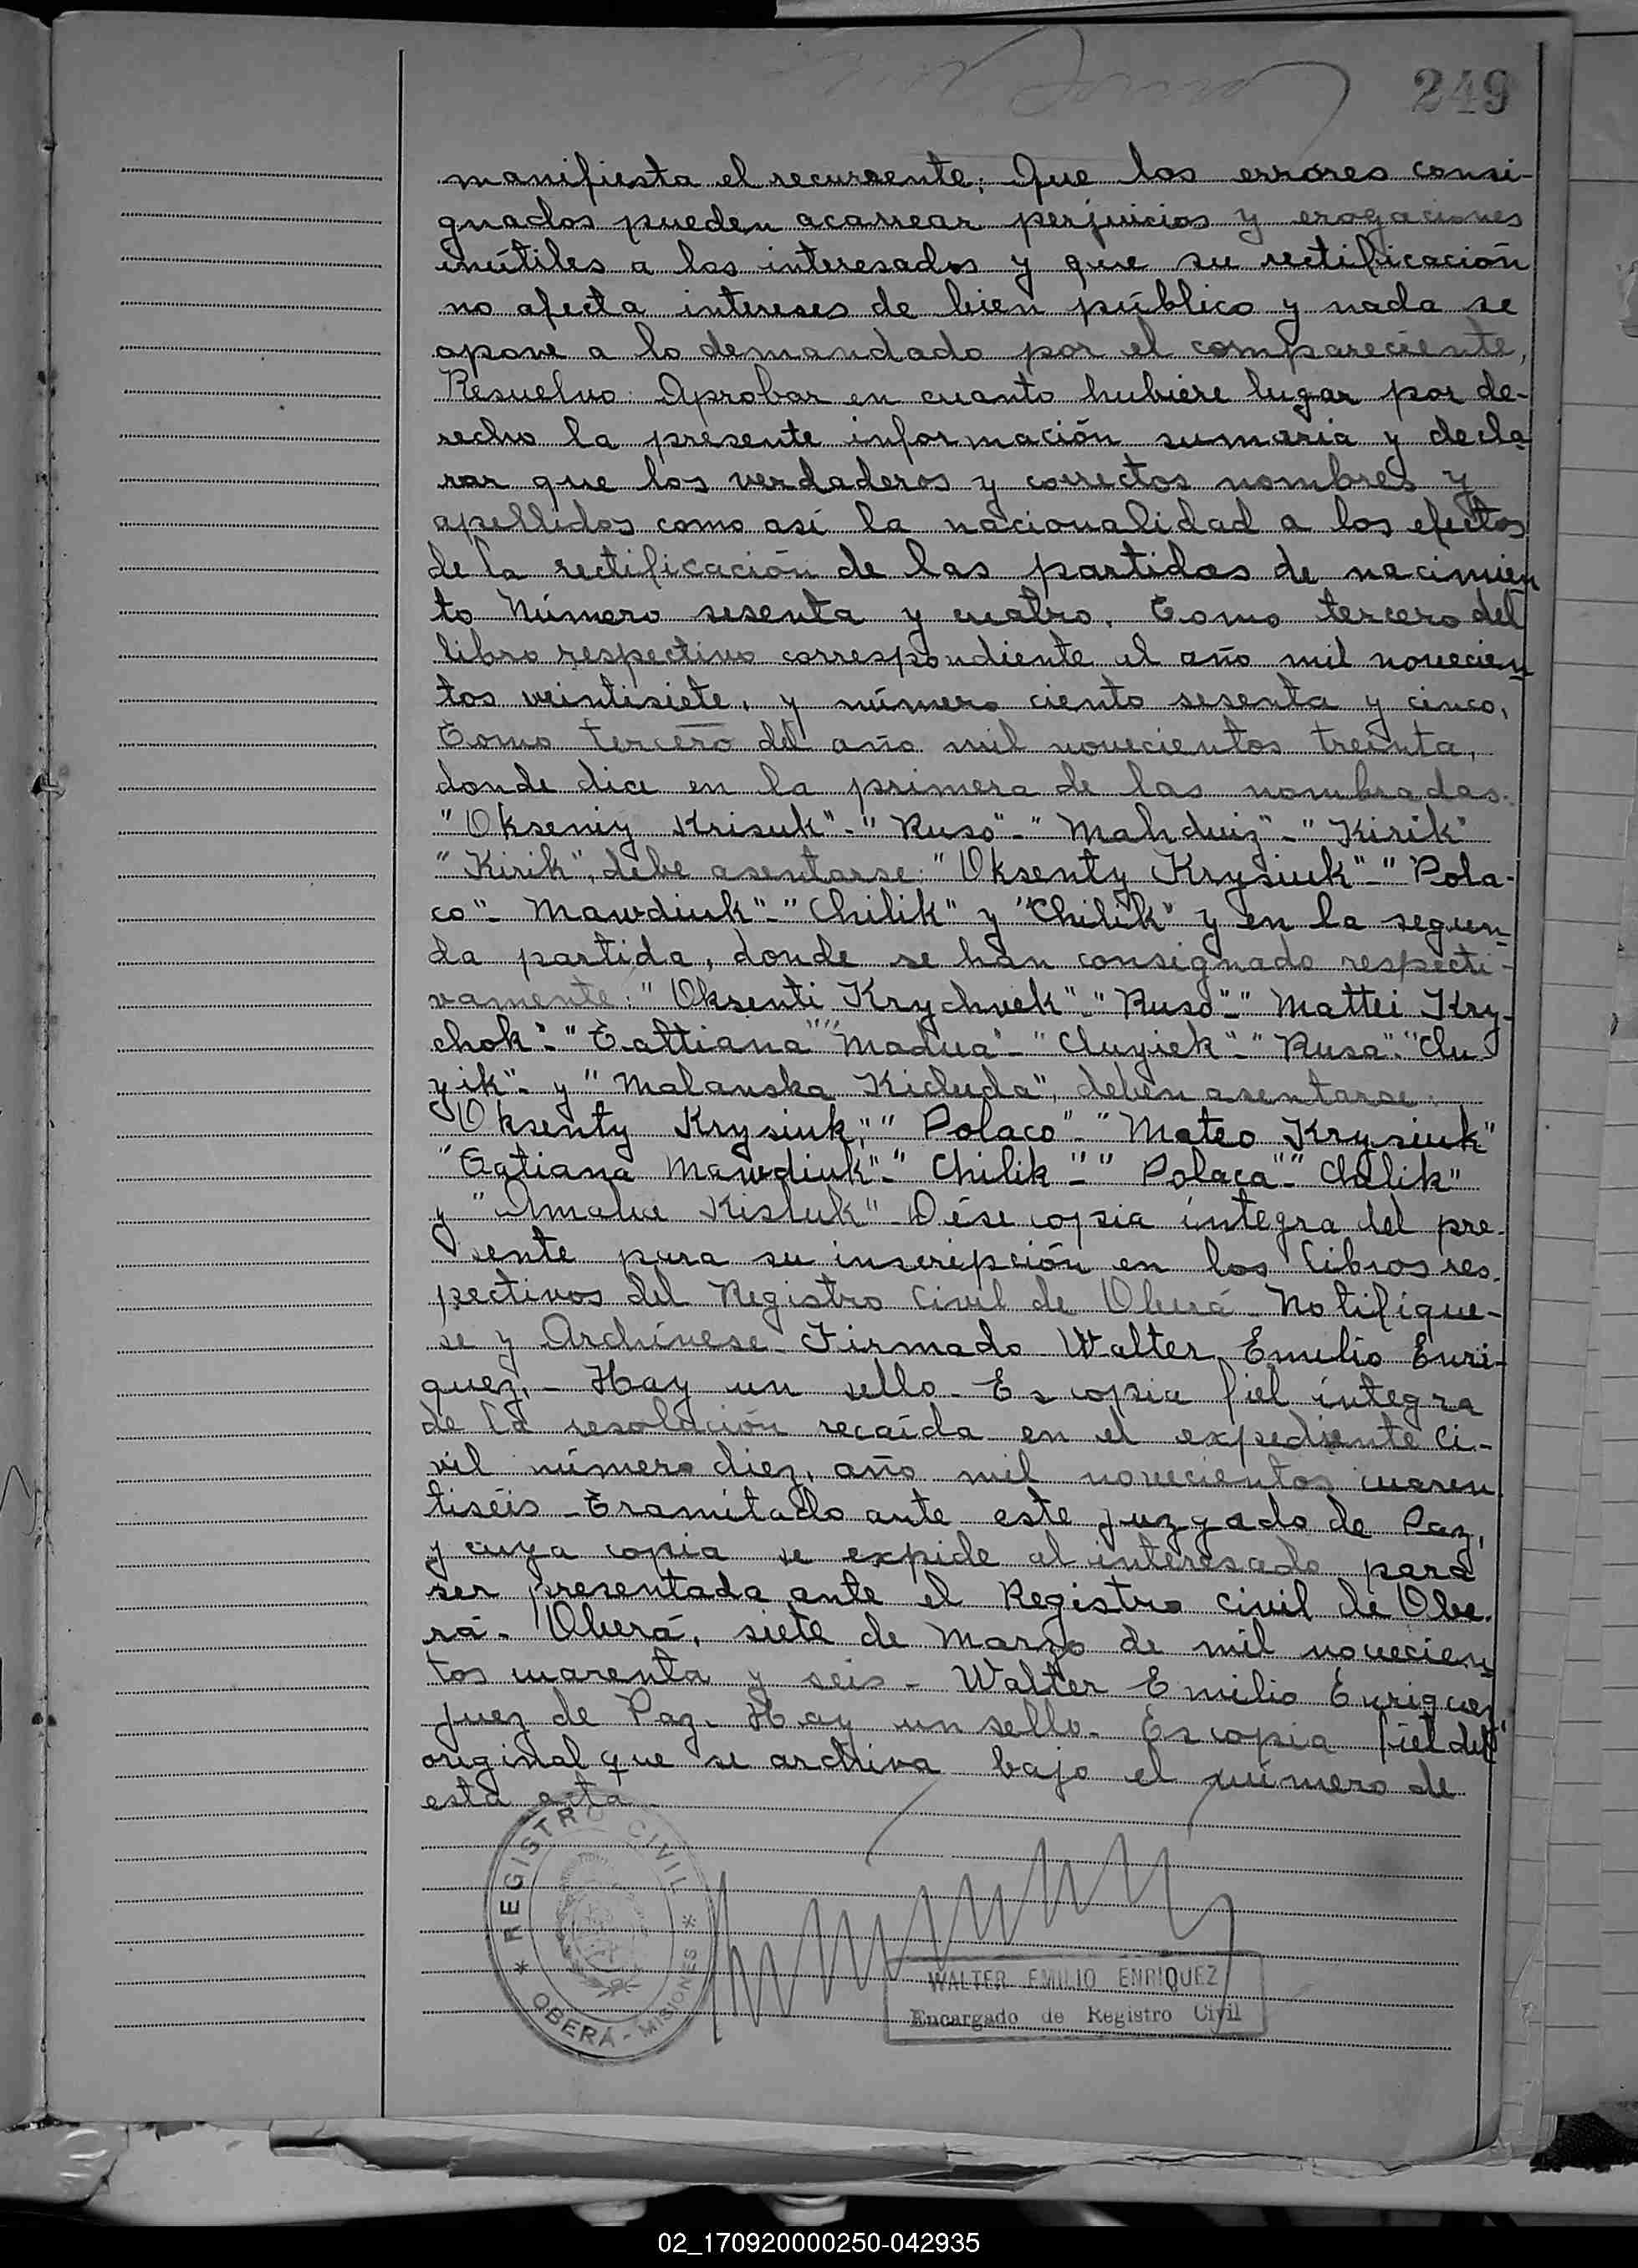 249
manifiesta el recurrente; Que los errores consi-
gnados pueden acarrear perjuicios y erogaciones
inútiles a los interesados y que su rectificación
no afecta intereses de bien público y nada se
opone a lo demandado por el compareciente,
Resuelvo: Aprobar en cuanto hubiere lugar por de-
recho la presente información sumaria y decla
rar que los verdaderos y correctos nombres y
apellidos como así la nacionalidad a los efectos
de la rectificación de las partidas de nacimien
to Número sesenta y cuatro, Tomo tercero del
libro respectivo correspondiente al año mil novecien
tos veintisiete, y número ciento sesenta y cinco,
Tomo tercero del año mil novecientos treinta,
donde dice en la primera de las nombradas.
"Okseniy Krisuk"-"Ruso"-"Mahduiz"-"Kirik"
"Kirik", debe asentarse: "Oksenty Krysiuk"-"Pola-
co"- Mawdiuk"-"Chilik" y "Chilik" y en la segun
da partida, donde se han consignado respecti-
vamente: "Oksenti Krychvek"-"Ruso"-"Mattei Kry-
chok"-"Tattiana" "Madua"-"Cluyiek"-"Rusa"-"Clu-
yik"- y "Malanska Kiduda", deben asentarse:
"Oksenty Krysiuk," "Polaco"-"Mateo Krysiuk"
"Tatiana Mawdiuk"-"Chilik"-"Polaca"-"Chilik"
y "Amalia Kisluk"- Dése copia íntegra del pre-
sente para su inscripción en los libros res-
pectivos del Registro Civil de Oberá. Notifíque-
se y Archívese. Firmado Walter Emilio Enri-
quez,- Hay un sello- Es copia fiel íntegra
de la resolución recaída en el expediente Ci-
vil número diez, año mil novecientos cuaren
tiséis - Tramitado ante este juzgado de Paz,
y cuya copia se expide al interesado para
ser presentada ante el Registro civil de Obe-
rá- Oberá, siete de Marzo de mil novecien
tos cuarenta y seis - Walter Emilio Enriquez
Juez de Paz. Hay un sello. Es copia fiel del
original que se archiva bajo el número de
esta acta
REGISTRO CIVIL
* OBERA - MISIONES *
WALTER EMILIO ENRIQUEZ
Encargado de Registro Civil
02_170920000250-042935